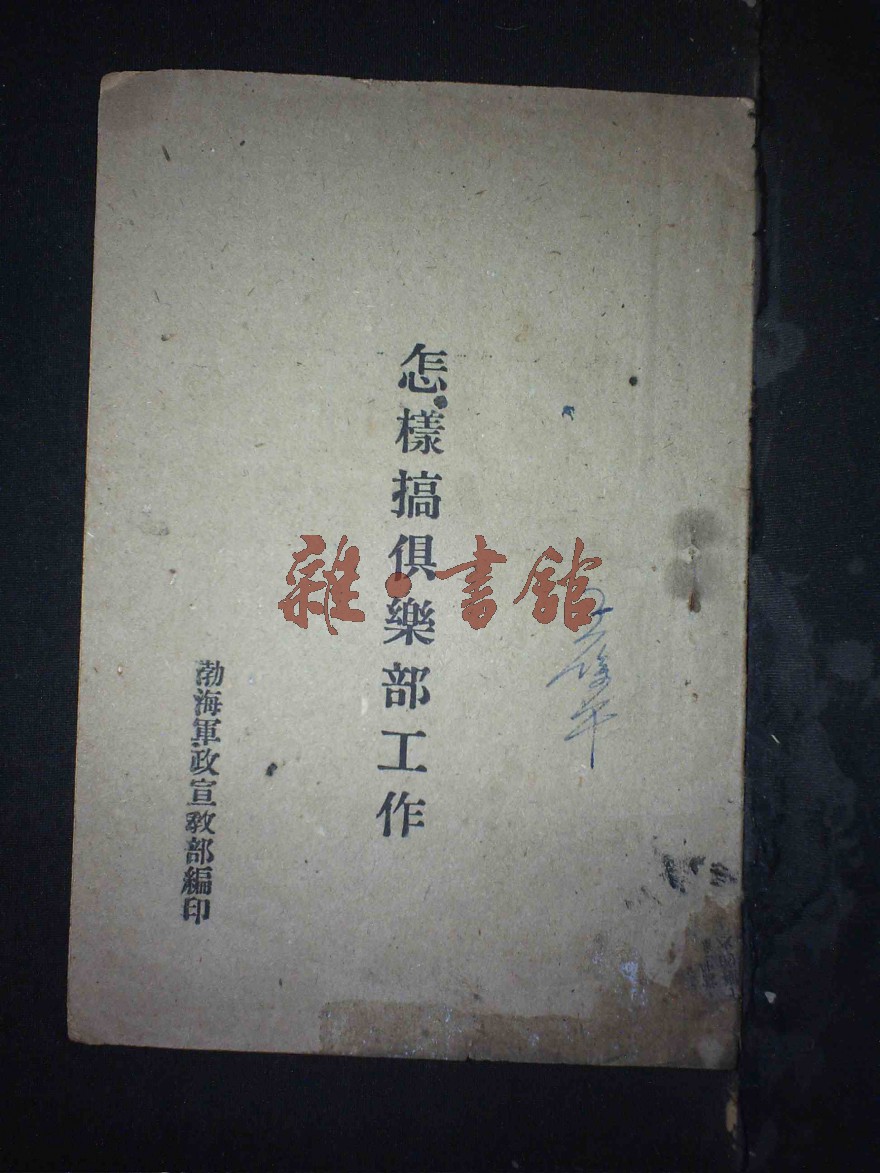 怎樣搞俱樂部工作
渤海軍政宣教部編印
雜·書館